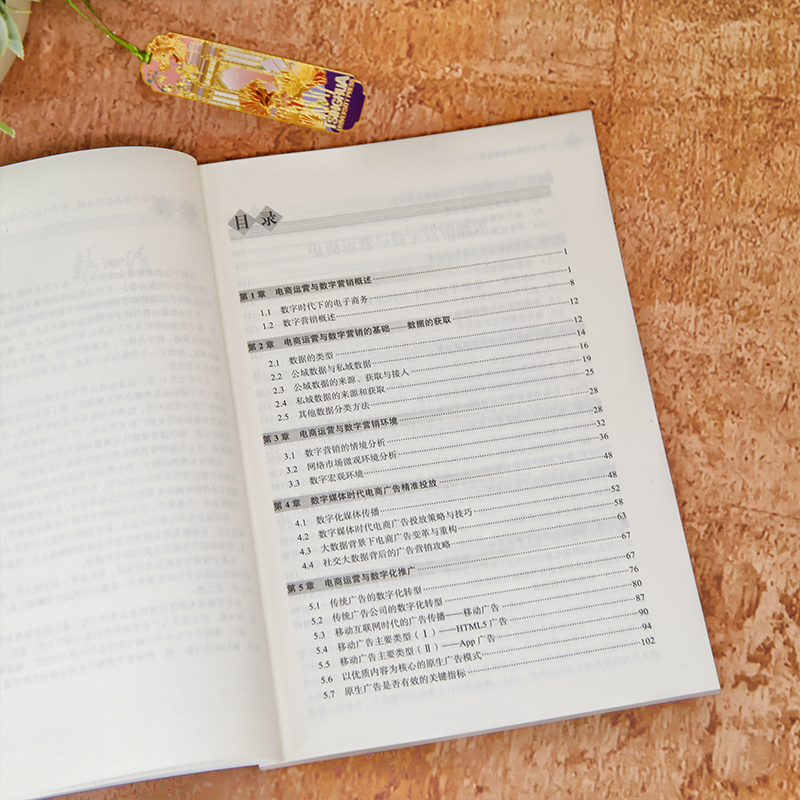 TSINGHUA
UNIVERSITY PRESS
目 录
第 1 章 电商运营与数字营销概述 1
1.1 数字时代下的电子商务 1
1.2 数字营销概述 8
第 2 章 电商运营与数字营销的基础——数据的获取 12
2.1 数据的类型 12
2.2 公域数据与私域数据 14
2.3 公域数据的来源、获取与接入 16
2.4 私域数据的来源和获取 19
2.5 其他数据分类方法 25
第 3 章 电商运营与数字营销环境 28
3.1 数字营销的情境分析 28
3.2 网络市场微观环境分析 32
3.3 数字宏观环境 36
第 4 章 数字媒体时代电商广告精准投放 48
4.1 数字化媒体传播 48
4.2 数字媒体时代电商广告投放策略与技巧 52
4.3 大数据背景下电商广告变革与重构 58
4.4 社交大数据背后的广告营销攻略 63
第 5 章 电商运营与数字化推广 67
5.1 传统广告的数字化转型 67
5.2 传统广告公司的数字化转型 76
5.3 移动互联网时代的广告传播——移动广告 80
5.4 移动广告主要类型（Ⅰ）——HTML5 广告 87
5.5 移动广告主要类型（Ⅱ）——App 广告 90
5.6 以优质内容为核心的原生广告模式 94
5.7 原生广告是否有效的关键指标 102